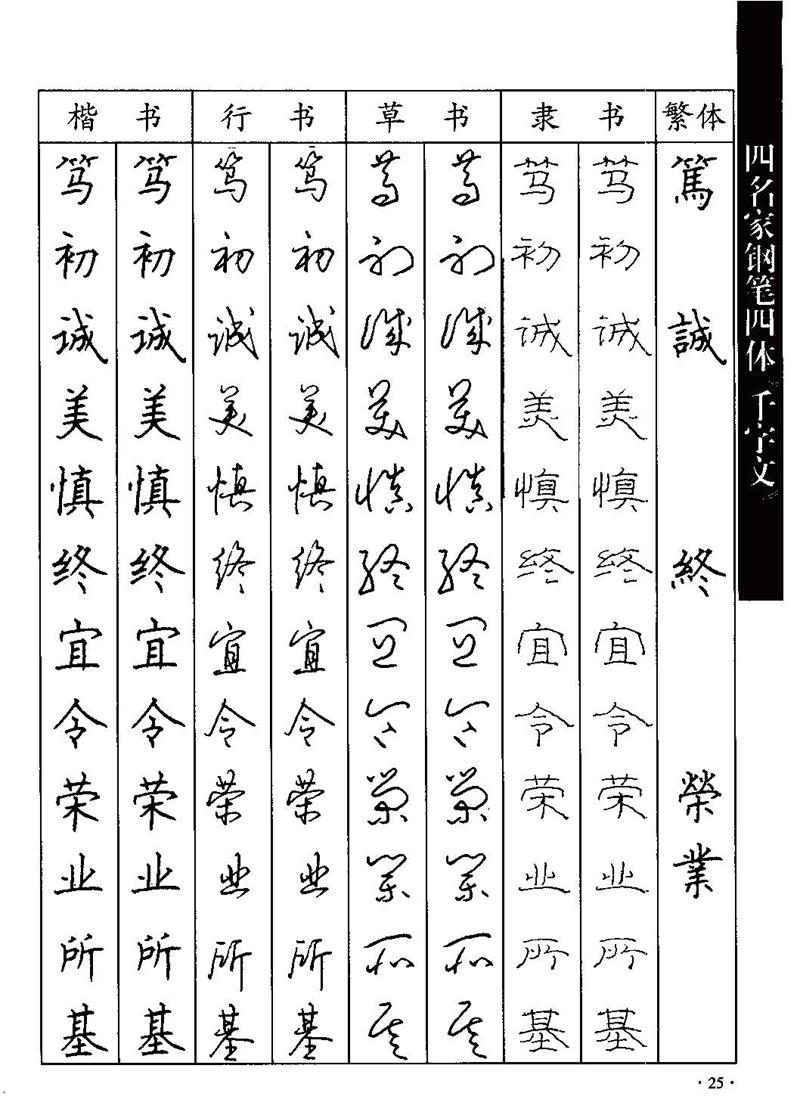 楷 书 行 书 草 书 隶 书 繁体
笃 笃 笃 笃 笃 笃 笃 笃 篤
初 初 初 初 初 初 初 初
诚 诚 诚 诚 诚 诚 诚 诚 誠
美 美 美 美 美 美 美 美
慎 慎 慎 慎 慎 慎 慎 慎
终 终 终 终 终 终 终 终 終
宜 宜 宜 宜 宜 宜 宜 宜
令 令 令 令 令 令 令 令
荣 荣 荣 荣 荣 荣 荣 荣 榮
业 业 业 业 业 业 业 业 業
所 所 所 所 所 所 所 所
基 基 基 基 基 基 基 基
四名家钢笔四体《千字文》
·25·